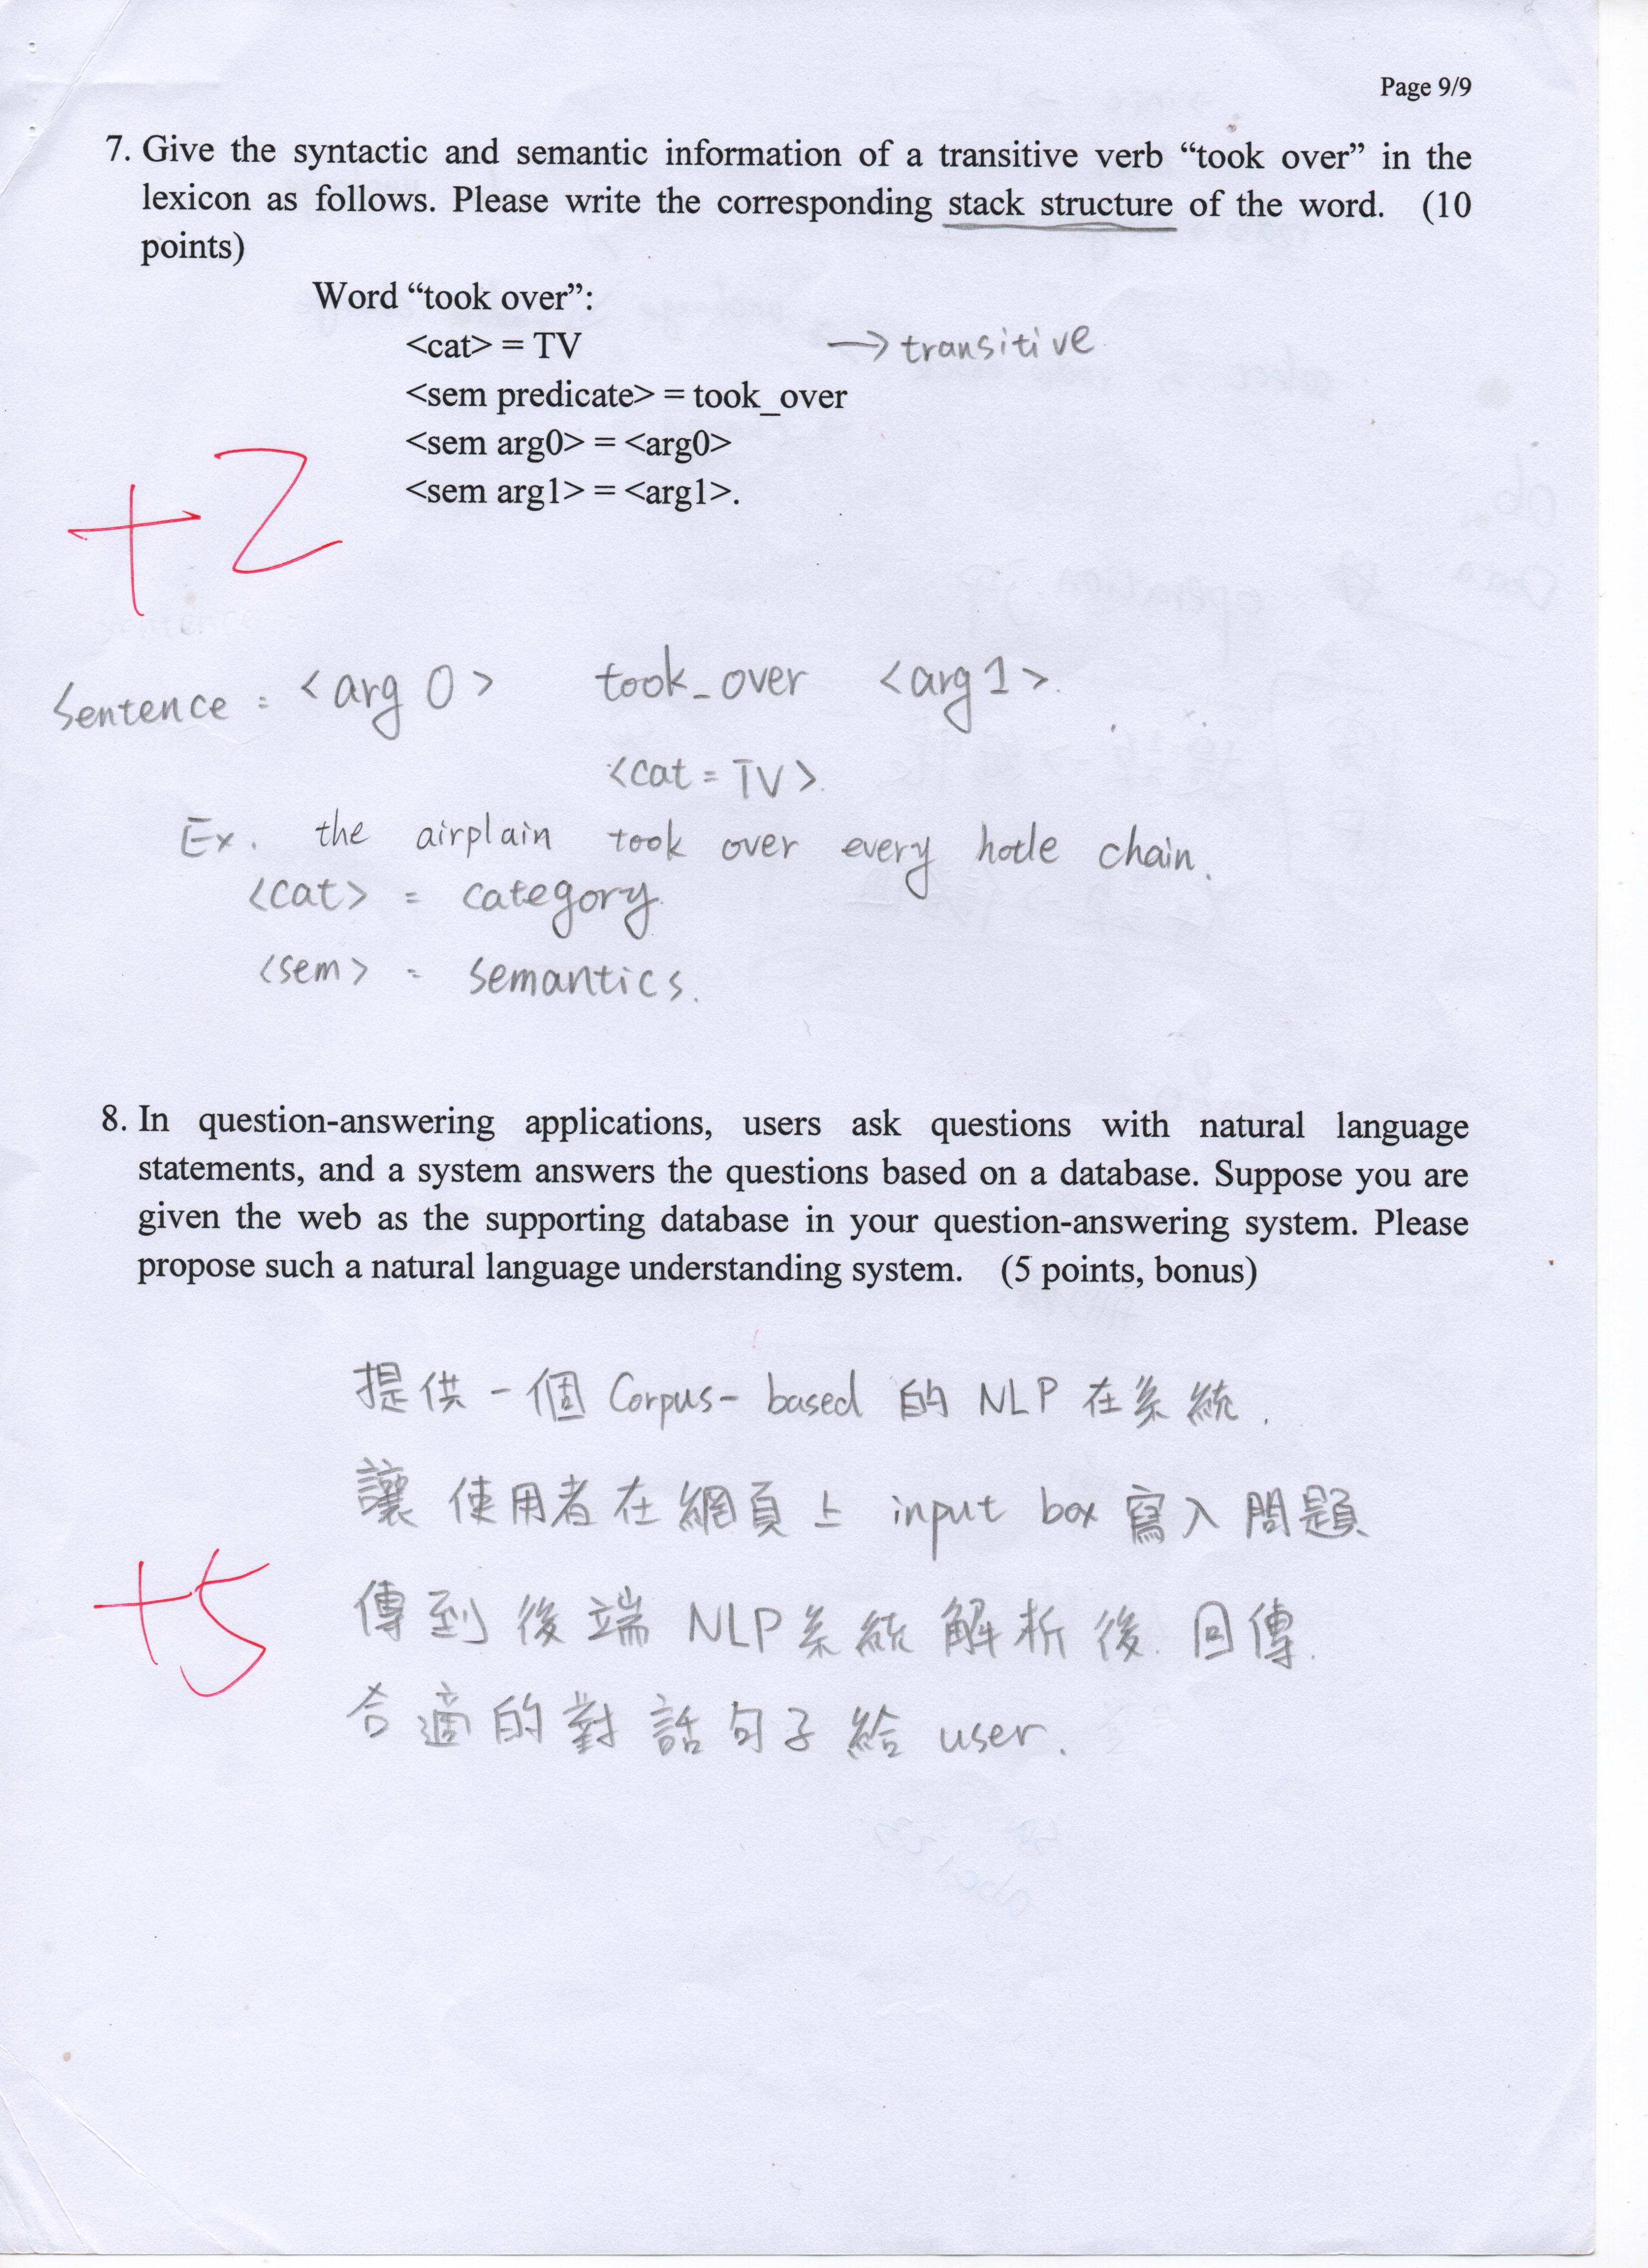 Page 9/9
7. Give the syntactic and semantic information of a transitive verb “took over” in the
lexicon as follows. Please write the corresponding stack structure of the word. (10
points)
Word “took over”:
<cat> = TV → transitive
<sem predicate> = took_over
<sem arg0> = <arg0>
<sem arg1> = <arg1>.
+2
Sentence : <arg 0> took_over <arg 1>.
<cat = TV>.
Ex. the airplain took over every hotle chain.
<cat> = category.
<sem> = semantics.
8. In question-answering applications, users ask questions with natural language
statements, and a system answers the questions based on a database. Suppose you are
given the web as the supporting database in your question-answering system. Please
propose such a natural language understanding system. (5 points, bonus)
提供一個 Corpus-based 的 NLP 在系統.
讓使用者在網頁上 input box 寫入問題
+5
傳到後端 NLP系統解析後.回傳.
合適的對話句子給 user.